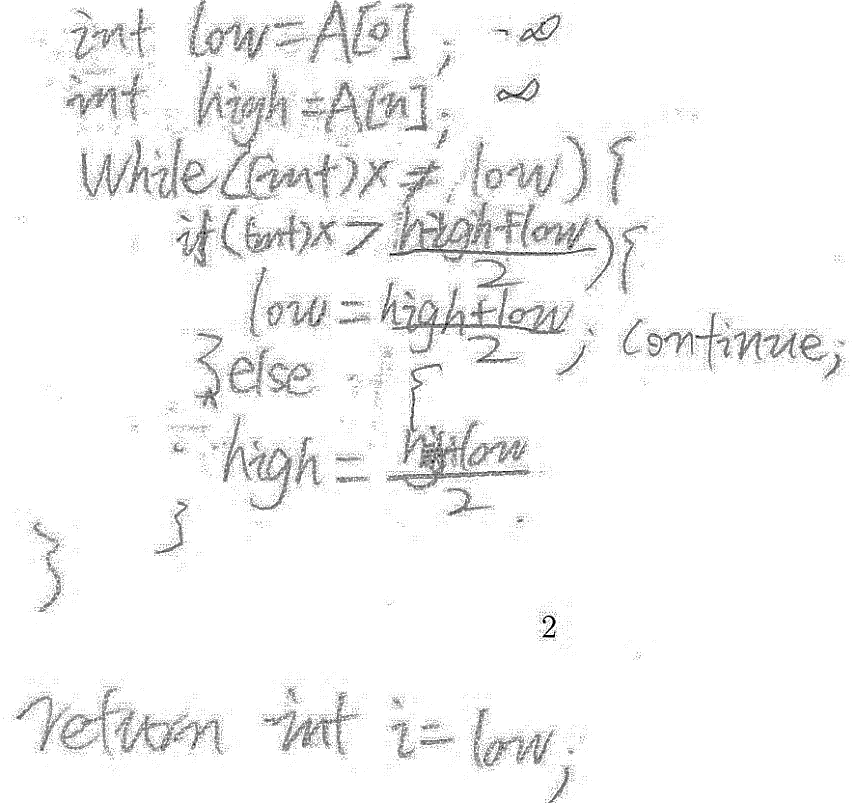 int low = A[0]; -∞
int high = A[n]; ∞
While((int)x ≠ low){
if((int)x > (high+low)/2){
low = (high+low)/2; continue;
}else {
high = (high+low)/2.
}
}
2
return int i = low;